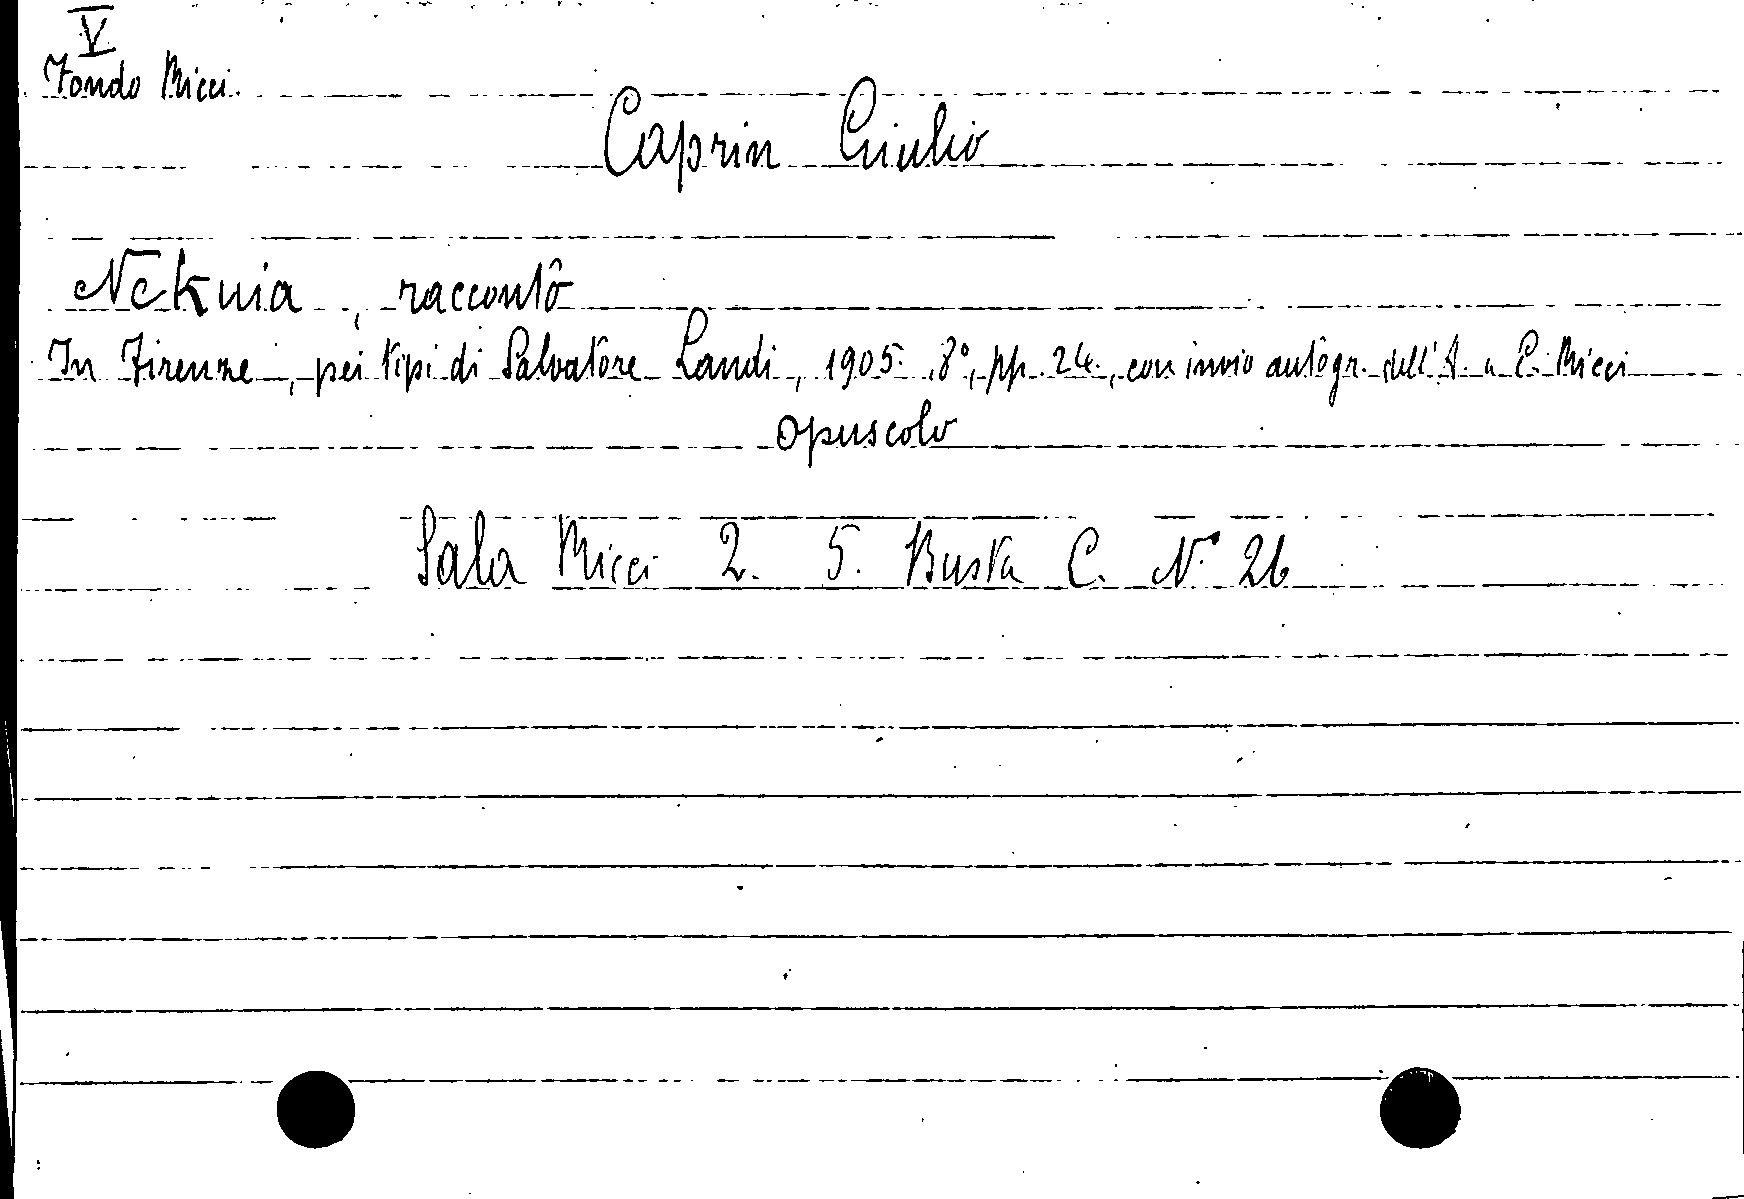 V
Fondo Ricci.
Caprin Giulio
Nekuia, racconto
In Firenze, pei tipi di Salvatore Landi, 1905. 8°, pp. 24., con invio autogr. dell'A. a C. Ricci
opuscolo
Sala Ricci 2. 5. Busta C. N° 26